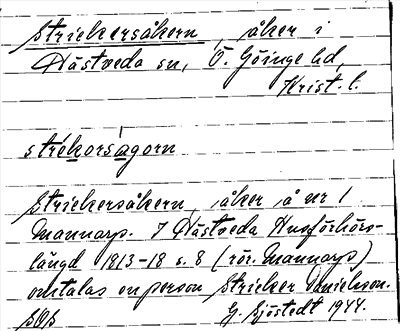 Strickersåkern, åker i
Hästveda sn, Ö. Göinge hd,
Krist. l.
strékorsàgorn
Strickersåkern, åker å nr 1
Mannarp. I Hästveda Husförhörs-
längd 1813-18 s. 8 (rör. Mannarp)
omtalas en person Stricker Danielson.
G. Sjöstedt 1944.